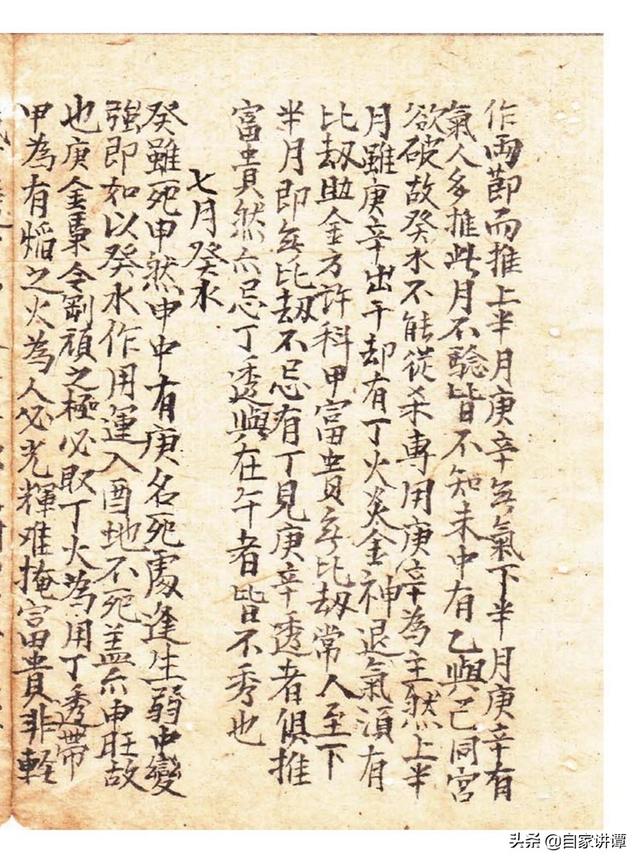 作両節而推上半月庚辛無氣下半月庚辛有
氣人多推此月不驗皆不知未中有乙與己同宮
欲破故癸水不能從杀專用庚辛為主然上半
月雖庚辛出干却有丁火炎金神退氣須有
比劫助金方許科甲富貴無比劫常人至下
半月即無比劫不忌有丁見庚辛透者俱推
富貴然亦忌丁透與在午者皆不秀也
七月癸水
癸雖死申然申中有庚名死處逢生弱中變
強即如以癸水作用運入酉地不死盖亦申旺故
也庚金秉令剛頑之極必取丁火為用丁透帶
甲為有焰之火為人必光輝难掩富貴非輕
头条 @自家讲谭